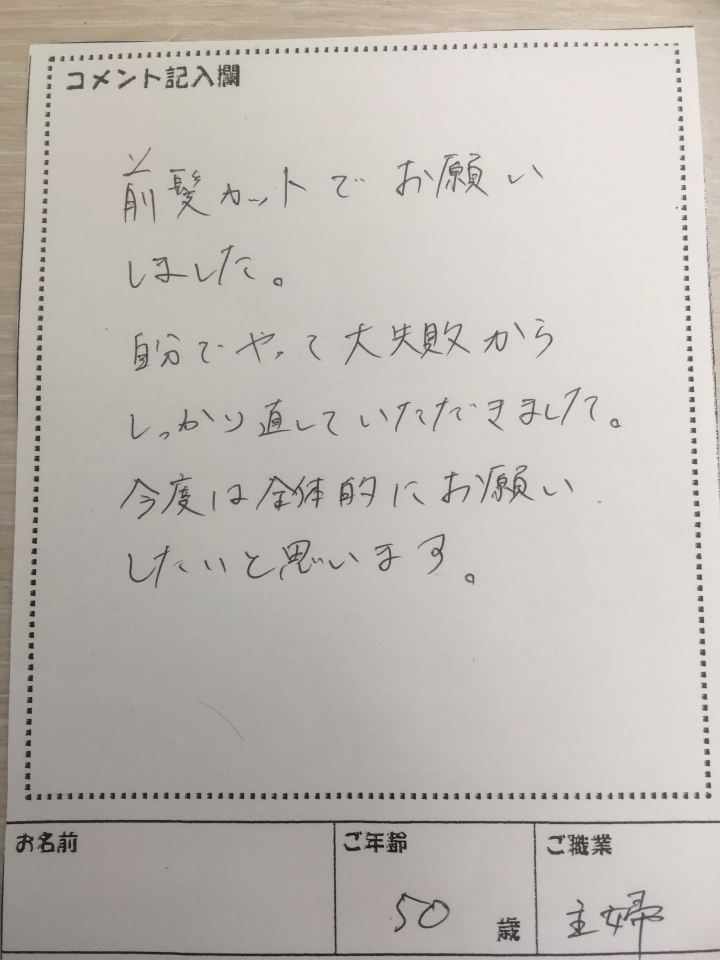 コメント記入欄
前髪カットでお願い
しました。
自分でやって大失敗から
しっかり直していただきました。
今度は全体的にお願い
したいと思います。
お名前
ご年齢
ご職業
50 歳
主婦